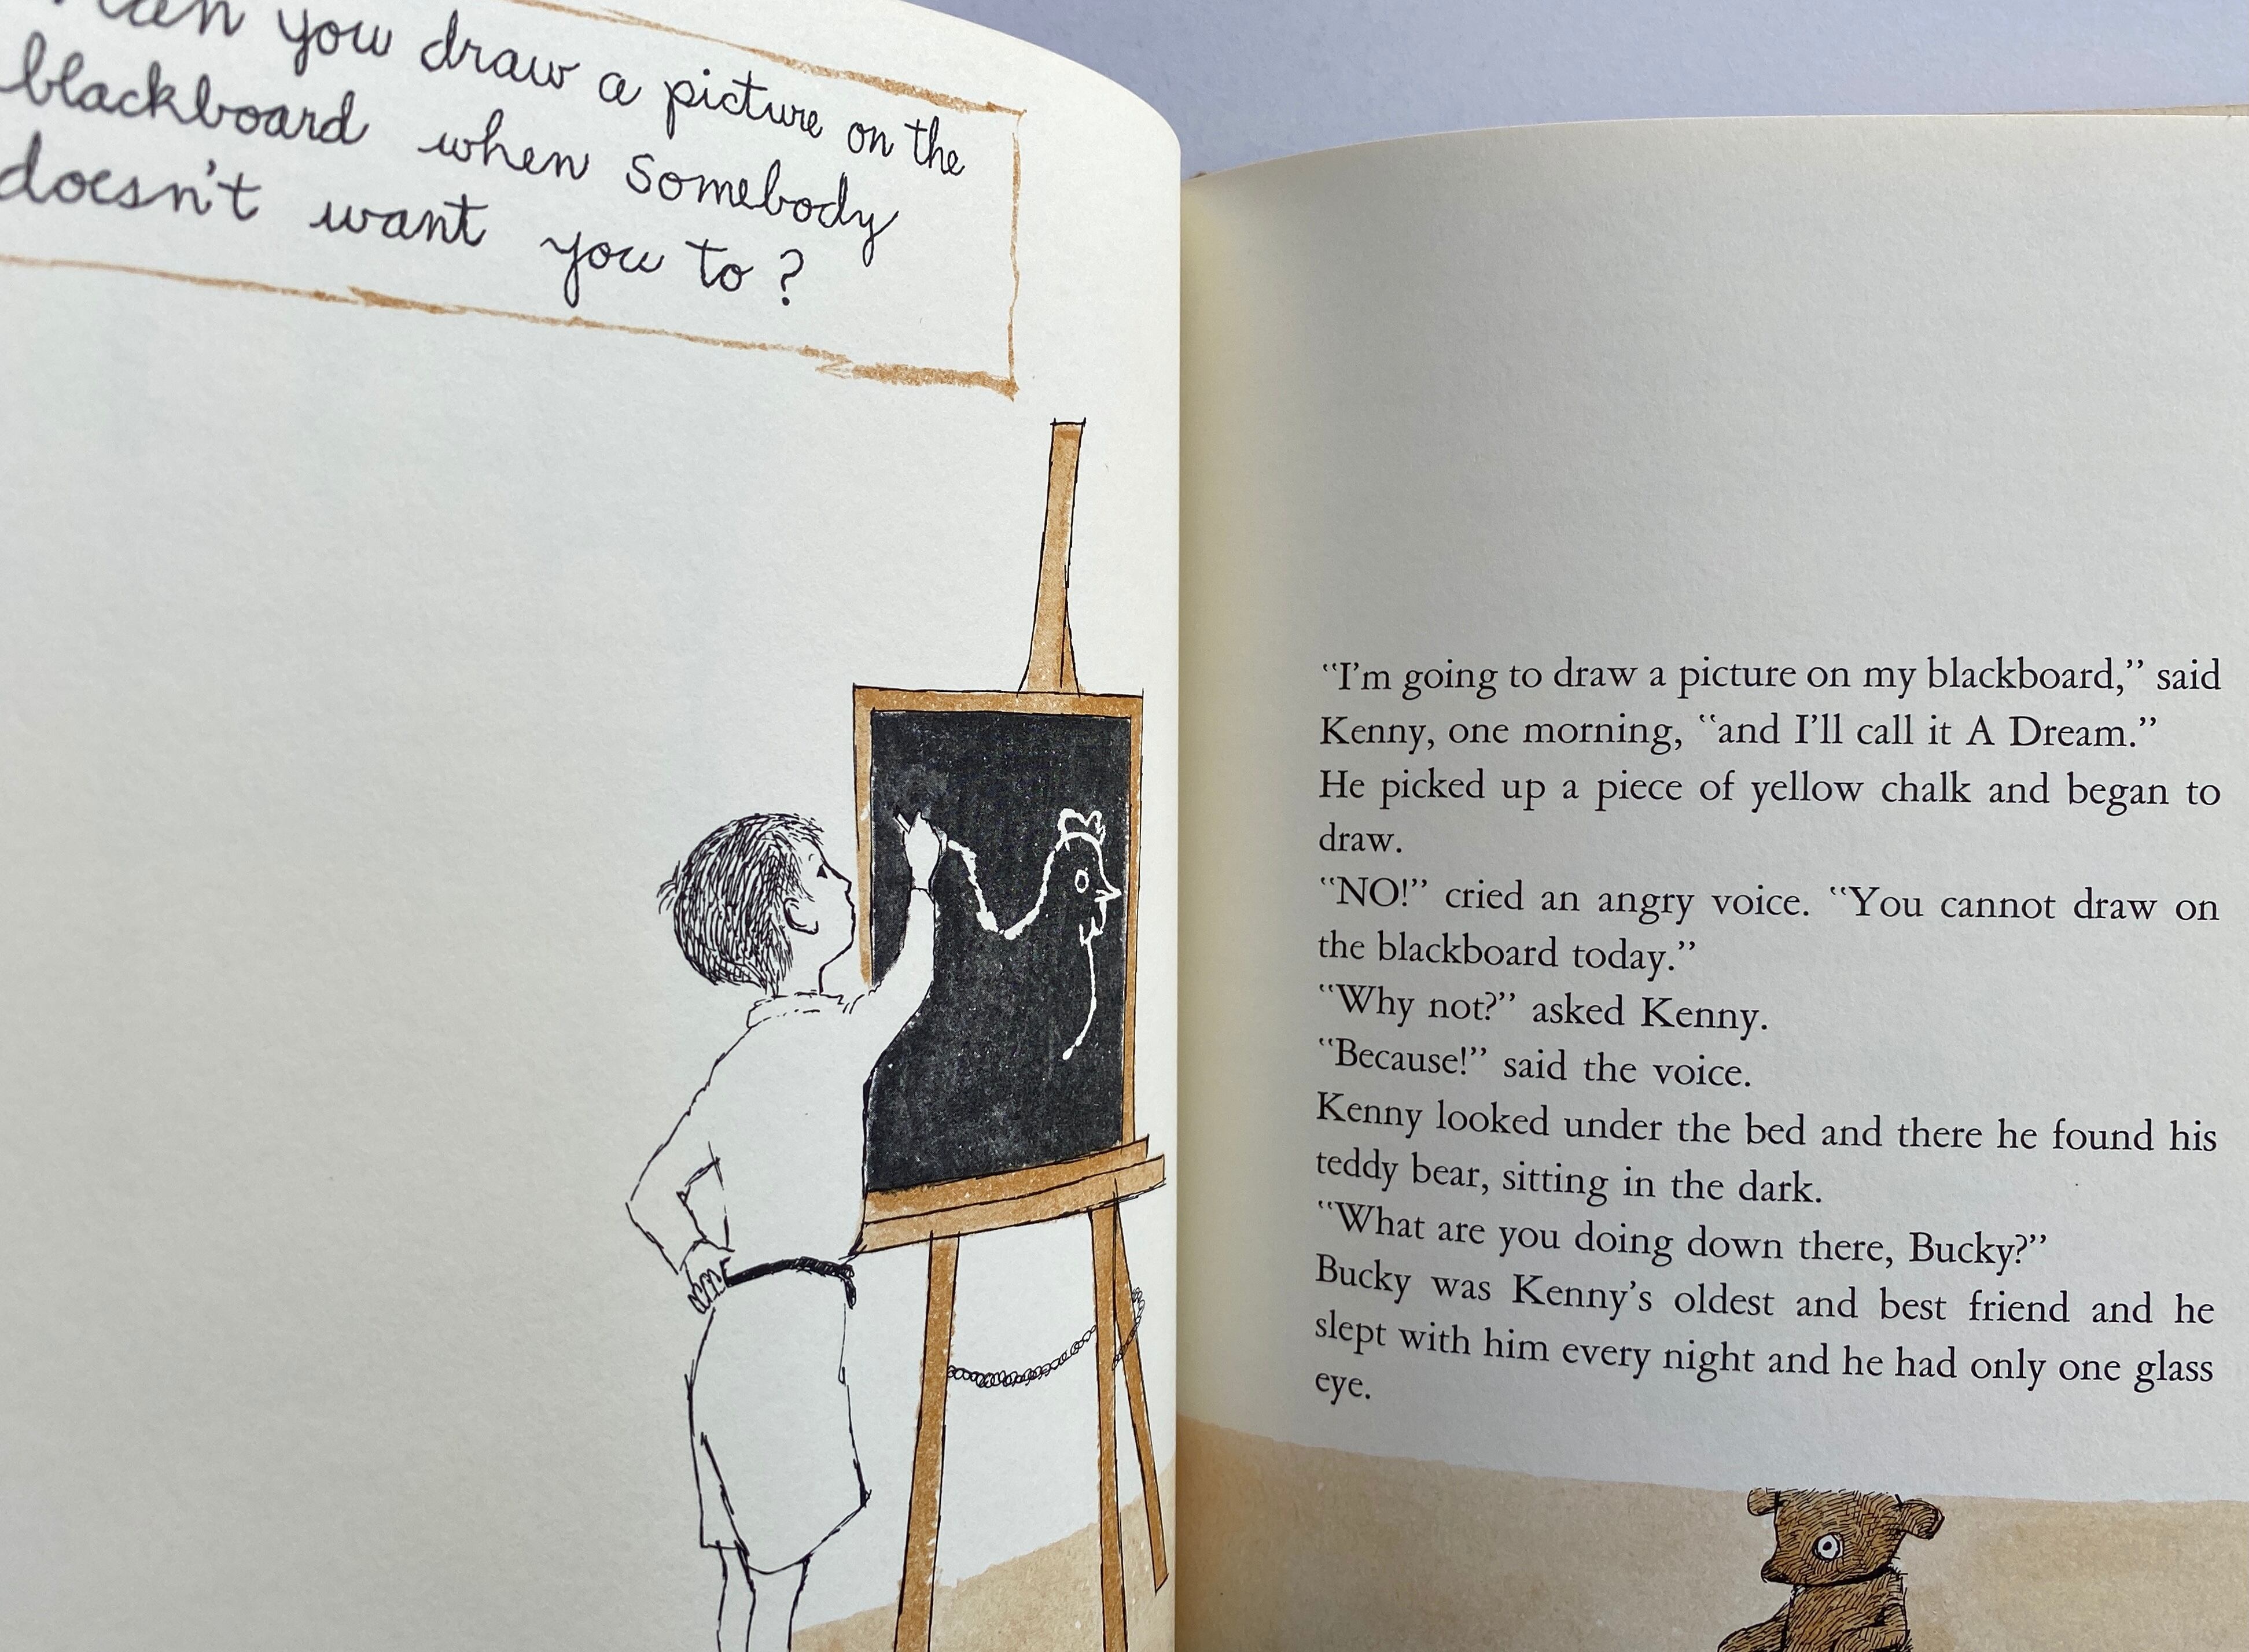 you draw a picture on the
blackboard when somebody
doesn't want you to?
"I'm going to draw a picture on my blackboard," said
Kenny, one morning, "and I'll call it A Dream."
He picked up a piece of yellow chalk and began to
draw.
"NO!" cried an angry voice. "You cannot draw on
the blackboard today."
"Why not?" asked Kenny.
"Because!" said the voice.
Kenny looked under the bed and there he found his
teddy bear, sitting in the dark.
"What are you doing down there, Bucky?"
Bucky was Kenny's oldest and best friend and he
slept with him every night and he had only one glass
eye.